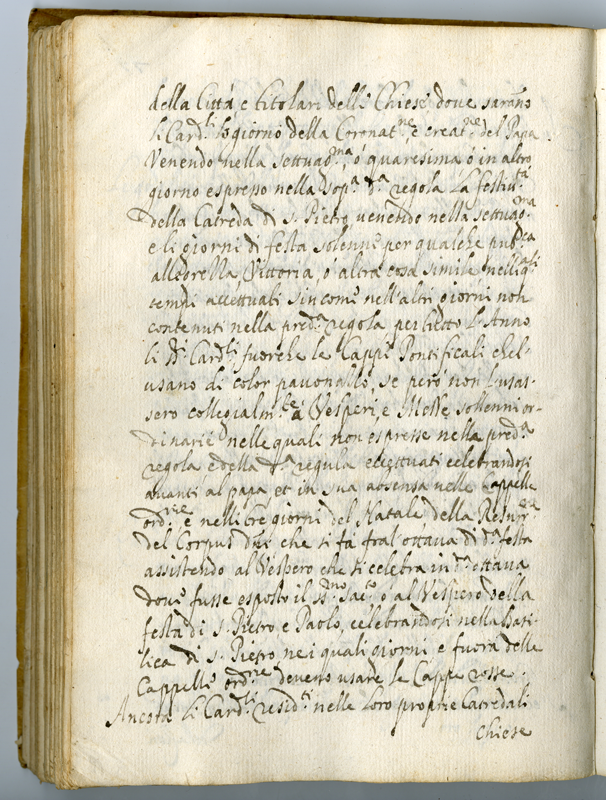 della Città e titolari delle Chiese dove sarano
li Card.li lo giorno della Coronat.ne, e creat.ne del Papa
Venendo nella settuag.ma, ò quaresima, ò in altro
giorno espresso nella sop.a d.a regola La festiu.tà
della Catreda di s. Pietro, venendo nella settuag.ma
e li giorni di festa solenne per qualche pub.ca
allegrezza, Vittoria, ò altra cosa simile nelli q.ali
tempi accettuati sincome nell'altri giorni non
contenuti nella pred.a regola per tutto L'Anno
li Card.li fuorche le Cappe Pontificali che l'
usano di color pauonazzo, se però non l'usas-
sero collegialm.te à Vesperi, e Messe sollenni or-
dinarie nelle quali non espresse nella pred.a
regola e della d.a regula eccettuati celebrandosi
auanti al papa et in sua absenza nelle Cappelle
ord.rie e nelli tre giorni del Natale, della Resurr.na
del Corpus Dni che si fà fral'ottaua di d.a festa
assistendo al Vespero che si celebra in d.a ottaua
doue fusse esposto il S.mo Sac.to ò al Vespero della
festa di s. Pietro e Paolo, celebrandosi nella Basi-
lica di s. Pietro ne i quali giorni e fuora delle
Cappelle ord.rie deueno usare le Cappe rosse.
Ancora li Card.li resid.ti nelle loro proprie Catredali
Chiese